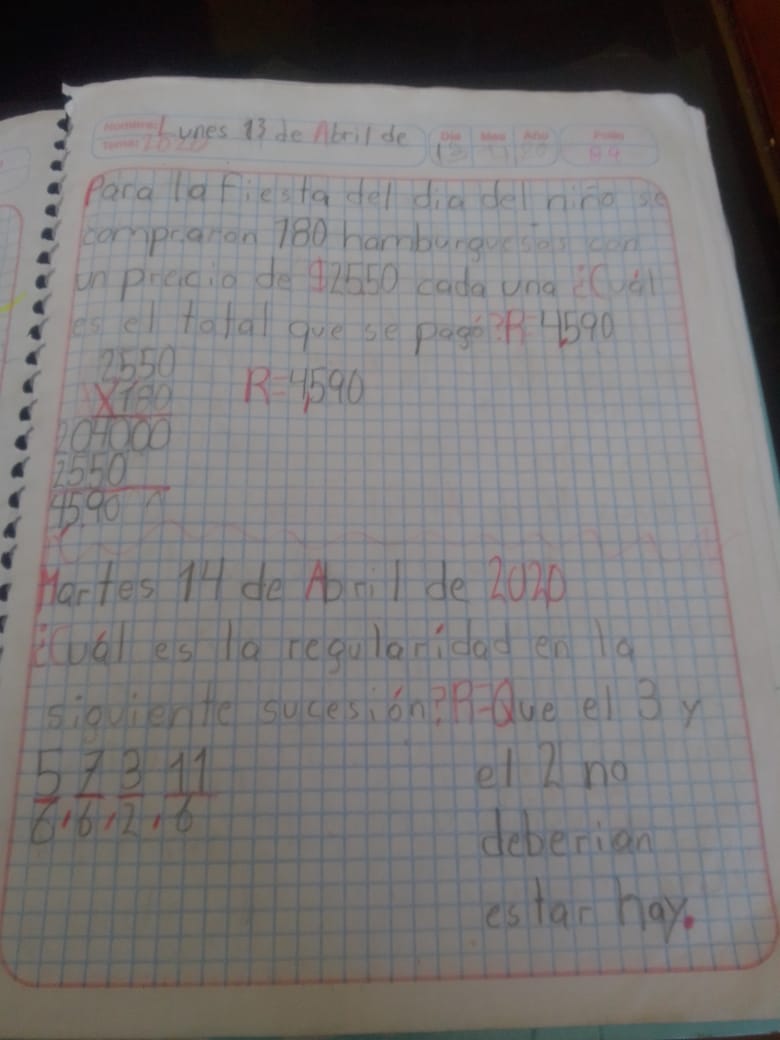 Nombre: Lunes 13 de Abril de
Tema: 2020
Día Mes Año Folio
13 4 20 84
Para la fiesta del dia del niño se
compraron 180 hamburguesas con
un precio de $2550 cada una ¿Cuál
es el total que se pagó? R=4,590
2550
X180
R=4,590
204000
2550
4590
Martes 14 de Abril de 2020
¿Cuál es la regularidad en la
siguiente sucesión? R=Que el 3 y
5 7 3 11
el 2 no
6, 6, 2, 6
deberian
estar hay.